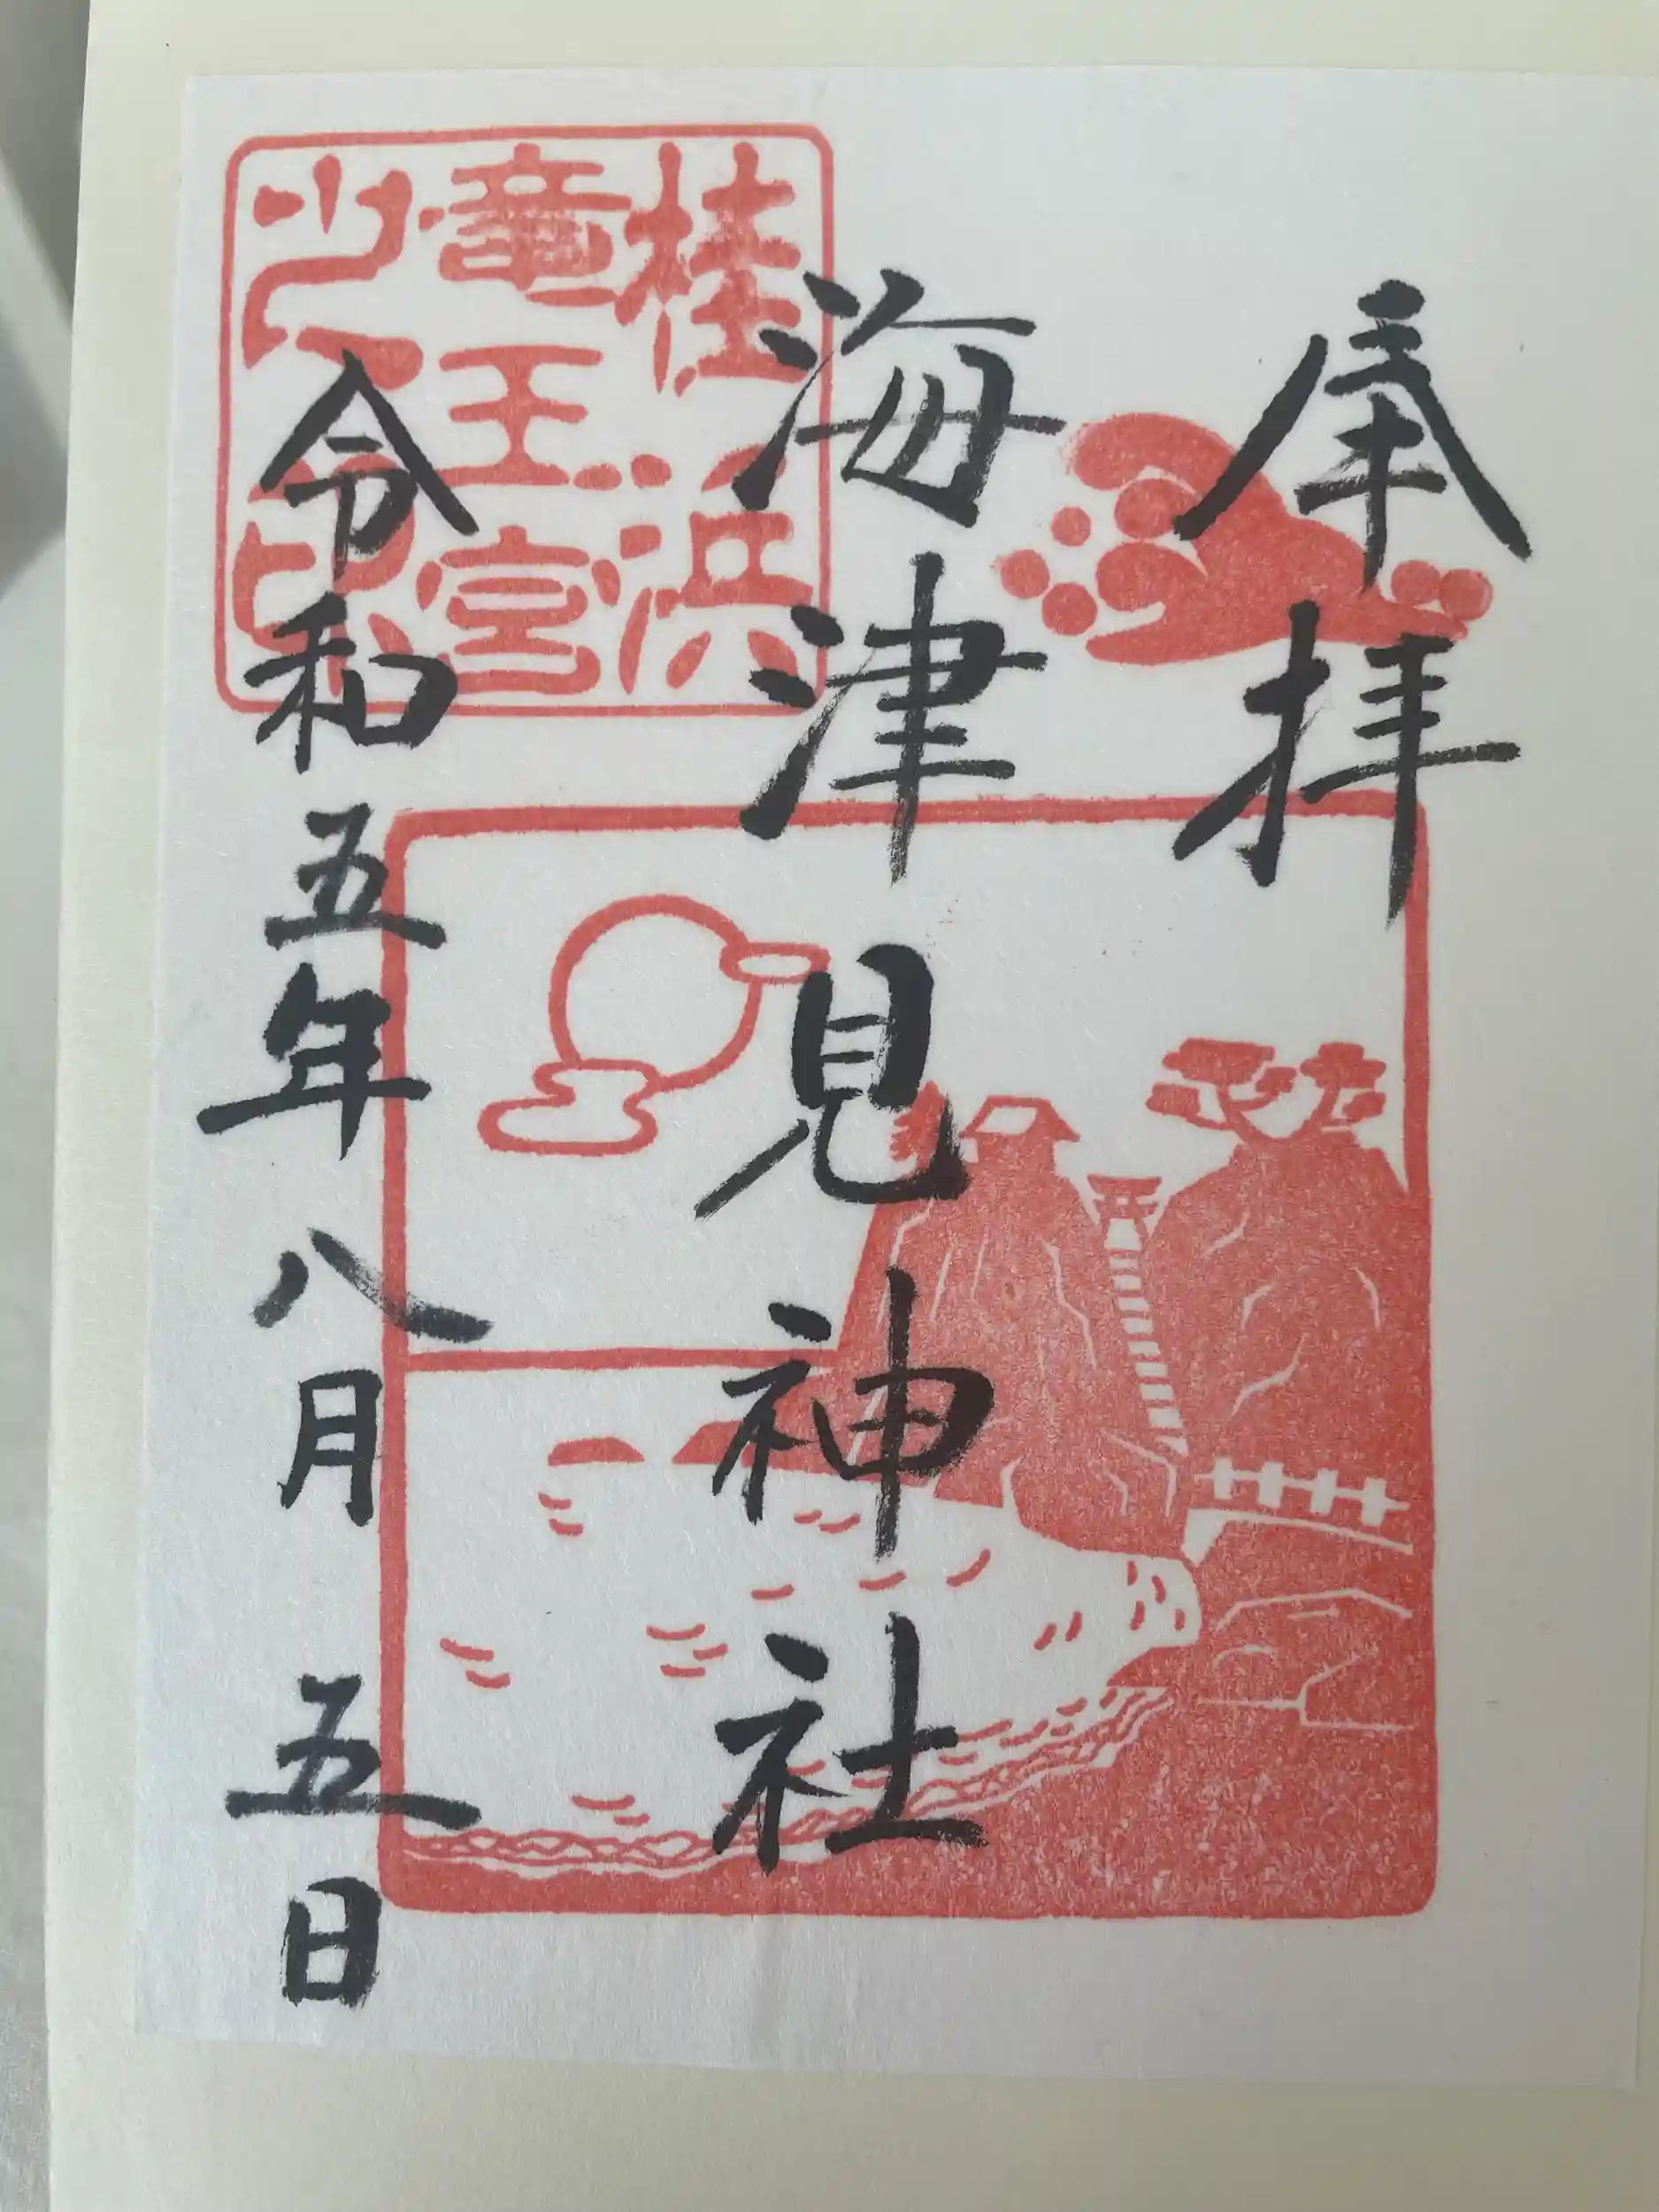 奉拝
海津見神社
桂浜
竜王宮
之印
令和五年八月五日